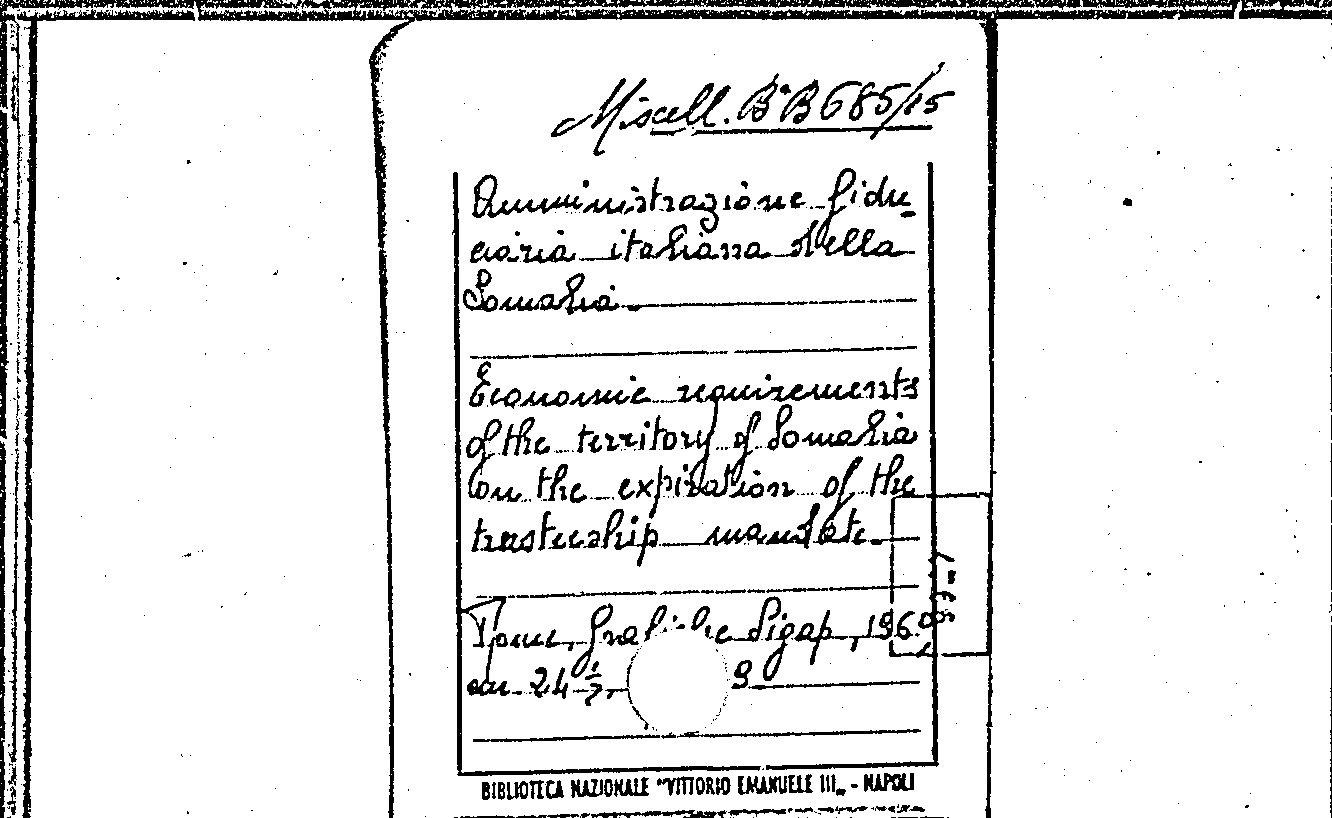 Miscell. B*B 685/15
Amministrazione fidu-
ciaria italiana della
Somalia.
Economic requirements
of the territory of Somalia
on the expiration of the
trusteeship mandate.
Grafiche Sigap, 196
cm. 24 1/2, 9
BIBLIOTECA NAZIONALE "VITTORIO EMANUELE III„ - NAPOLI